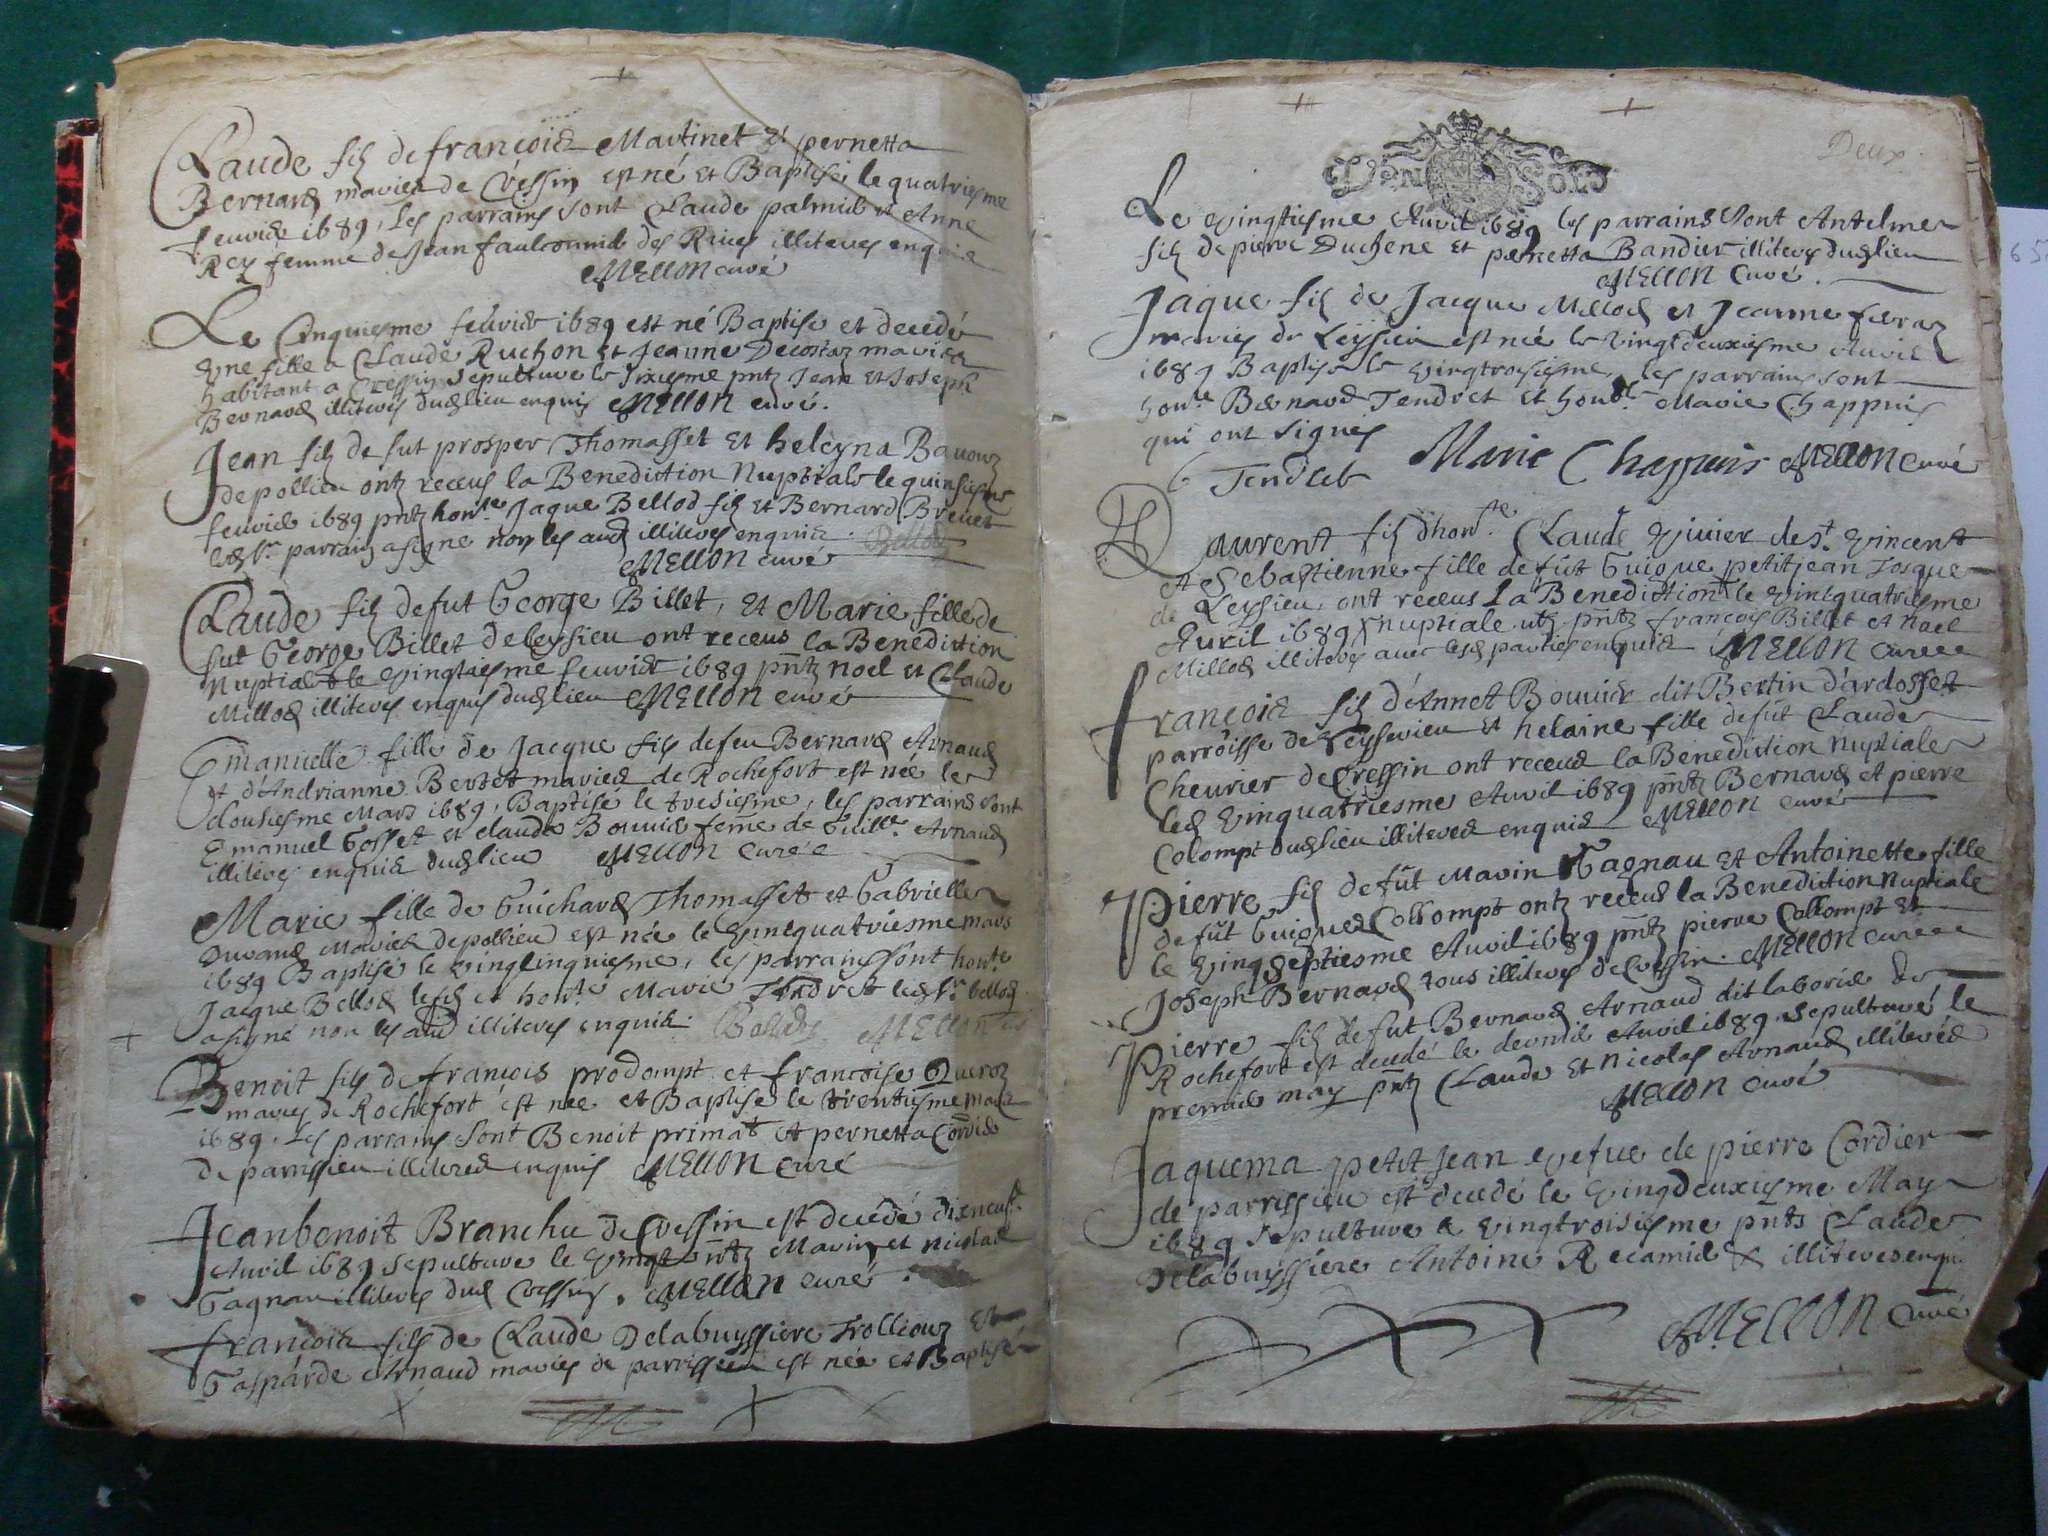 Claude fils de françois Martinet et pernetta
Bernard mariés de Cressin est né et Baptisé le quatriesme
feuvrier 1689, les parrains sont Claude palmier et Anne
Rey femme de Jean faulconnier des Rives illiteres enquis
MELLON curé
Le Cinquiesme feuvrier 1689 est né Baptisé et decedé
Une fille a Claude Ruchon et Jeanne Decostaz mariés
habitant a Cressin sepulture le sixiesme pntz Jean et Joseph
Bernard illiteres dud lieu enquis MELLON curé.
Jean fils de fut prosper Thomasset et heleyna
de pollieu ontz receus la Benediction Nuptiale le quinsiesme
feuvrier 1689 pntz honle Jaque Bellod fils et Bernard Brevet
led sr parrain a signe non les aud illiteres enquis. Bellod
MELLON curé
Claude fils de fut George Billet, et Marie fille de
fut George Billet de leysieu ont receus la Benediction
Nuptiale le vingtiesme feuvrier 1689 pntz noel et Claude
Millod illiteres enquis dud lieu MELLON curé
Emanuelle fille de Jacque fils de feu Bernard Arnaud
et d'Andrianne Bertet mariés de Rochefort est née le
dousiesme Mars 1689, Baptisé le tresiesme, les parrains sont
Emanuel Gosset et claude Bouvier feme de Guille Arnaud
illiteres enquis dud lieu MELLON curée
Marie fille de Guichard Thomasset et Gabrielle
Durand Mariés de pollieu est née le vincquatriesme mars
1689 Baptisé le vingtinquiesme, les parrains sont honle
Jacque Bellod le fils et honle Marie Tendret led sr bellod
a signé non les aud illiteres enquis. Bellod MELLON
Benoit fils de francois prodompt et francoise Queroz
mariés de Rochefort est née et Baptisé le trentiesme mars
1689. Les parrains sont Benoit primat et pernetta Cordier
de parissieu illiteres enquis MELLON curé
Jeanbenoit Branchu de Cressin est decedé dixneufe
Avril 1689 sepulture le vingt pntz Marin et nicolas
Gagnau illiteres dud Cressin. MELLON curé
françois fils de Claude Delabuyssiere Trollieuz Et
Gasparde Arnaud mariés de parrissieu est née et Baptisé
Deux
DEN SOLS
Le vingtiesme Avril 1689 les parrains sont Antelme
fils de pierre Duchene et pernetta Bandier illiteres dud lieu
MELLON Curé.
Jaque fils de Jacque Millod et Jeanne fieraz
mariés de Leysieu est née le vingtdeuxiesme Avril
1689 Baptisé le vingtroisiesme, les parrains sont
honle Bernard Tendret et honble Marie Chappuis
qui ont signés
Tendret Marie Chappuis MELLON curé
Laurent fils d'honle Claude vivier de st. vincent
et Sebastienne fille de fût Guigue petitjean Josque
de Leysieu, ont receus la Benediction le vincquatriesme
Avril 1689 nuptiale pntz françois Billet et noel
Millod illiteres avec lesd parties enquis MELLON curée
françois fils d'Annet Bouvier dit Bertin d'ardosset
parroisse de Ceyserieu et helaine fille defût Claude
Cheurier de Cressin ont receus la Benediction nuptiale
led vinquatriesme Avril 1689 pntz Bernard et pierre
Colompt dud lieu illiteres enquis MELLON curé
Pierre fils de fût Marin Gagnau et Antoinette fille
defût Guigue Collompt ontz receus la Benediction nuptiale
le vingseptiesme Avril 1689 pntz pierre Collompt et
Joseph Bernard tous illiteres de Cressin. MELLON curée
Pierre fils defut Bernard Arnaud dit laborier de
Rochefort est decedé le dernier Avril 1689. sepulturé le
premier may pntz Claude et Nicolas Arnaud illiteres
MELLON curé
Jaquema petit Jean vefue de pierre Cordier
de parrissieu est decedé le vingdeuxiesme May
1689 sepulture le vingtroisiesme pnts Claude
Delabuyssiere Antoine Recamier & illiteres enqui
MELLON Curé